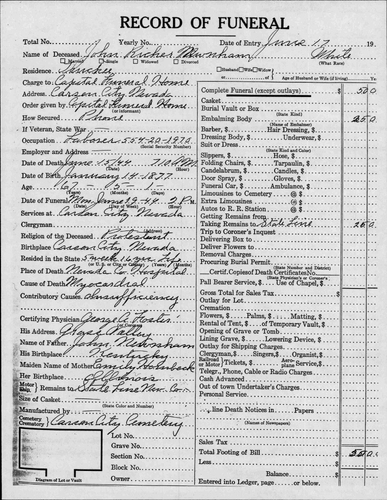 RECORD OF FUNERAL
Total No. Yearly No. Date of Entry June 17 19
Name of Deceased John Richer Newnham White
Married Single Widowed Divorced Husband Wife Widow (What Race)
Residence Truckee of Age of Husband or Wife (if living) Yrs.
Charge to Capitol Funeral Home
Address Carson City Nevada
Order given by Capitol Funeral Home
(or informant)
How Secured Phone
If Veteran, State War
Occupation Laborer 554-20-1970
(Social Security Number)
Employer and Address
Date of Death June 15/44 7:10 AM
Date of Birth January 14-1877
Age 67 - 5 - 1
Date of Funeral Mon June 19-44 2 P.M.
Services at Carson City Nevada
Clergyman
Religion of the Deceased Protestant
Birthplace Carson City Nevada
Resided in the State
(or U.S. or City or County) (Years) (Months)
Place of Death Nevada Co Hospital
Cause of Death Myocardial
Contributory Causes Insufficiency
Certifying Physician George A. Foster
His Address Grass Valley
Name of Father John Newnham
His Birthplace Kentucky
Maiden Name of Mother Emily Hornback
Her Birthplace Illinois
Motor Ship Remains to State Line Nev. Co
Size of Casket
(State Color and Number)
Manufactured by
Cemetery Carson City Cemetery
Lot No.
Grave No.
Section No.
Block No.
Owner
Diagram of Lot or Vault
Complete Funeral (except outlays) $ 50 0
Casket
Burial Vault or Box
(State Kind)
Embalming Body 25 0
(Name of Embalmer)
Barber, $ Hair Dressing, $
Dressing Body, $ Underwear, $
Suit or Dress
(State Kind and Color)
Slippers, $ Hose, $
Folding Chairs, $ Tarpaulin, $
Candelabrum, $ Candles, $
Door Spray, $ Gloves, $
Funeral Car, $ Ambulance, $
Limousines to Cemetery @ $
Extra Limousines @ $
Autos to R. R. Station @ $
Getting Remains from
Taking Remains to State Line 25 0
Trip to Coroner's Inquest
Delivering Box to
Deliver Flowers to
Removal Charges
Procuring Burial Permit
(State Number and District)
Certif. Copies of Death Certificates No.
(State Physician's or Coroner's)
Pall Bearer Service, $ Use of Chapel, $
Gross Total for Sales Tax $
Outlay for Lot
Cremation
Flowers, $ Palms, $ Matting, $
Rental of Tent, $ of Temporary Vault, $
Opening of Grave or Tomb
Lining Grave, $ Lowering Device, $
Outlay for Shipping Charges
Clergyman, $ Singers, $ Organist, $
Railroad or Motor Tickets, $ Aeroplane Service, $
Telegr., Phone, Cable or Radio Charges
Cash Advanced
Out of town Undertaker's Charges
Personal Service
line Death Notices in Papers
(Names of Newspapers)
Sales Tax
Total Footing of Bill $ 55 0
Less $
Balance
Entered into Ledger, page or below.